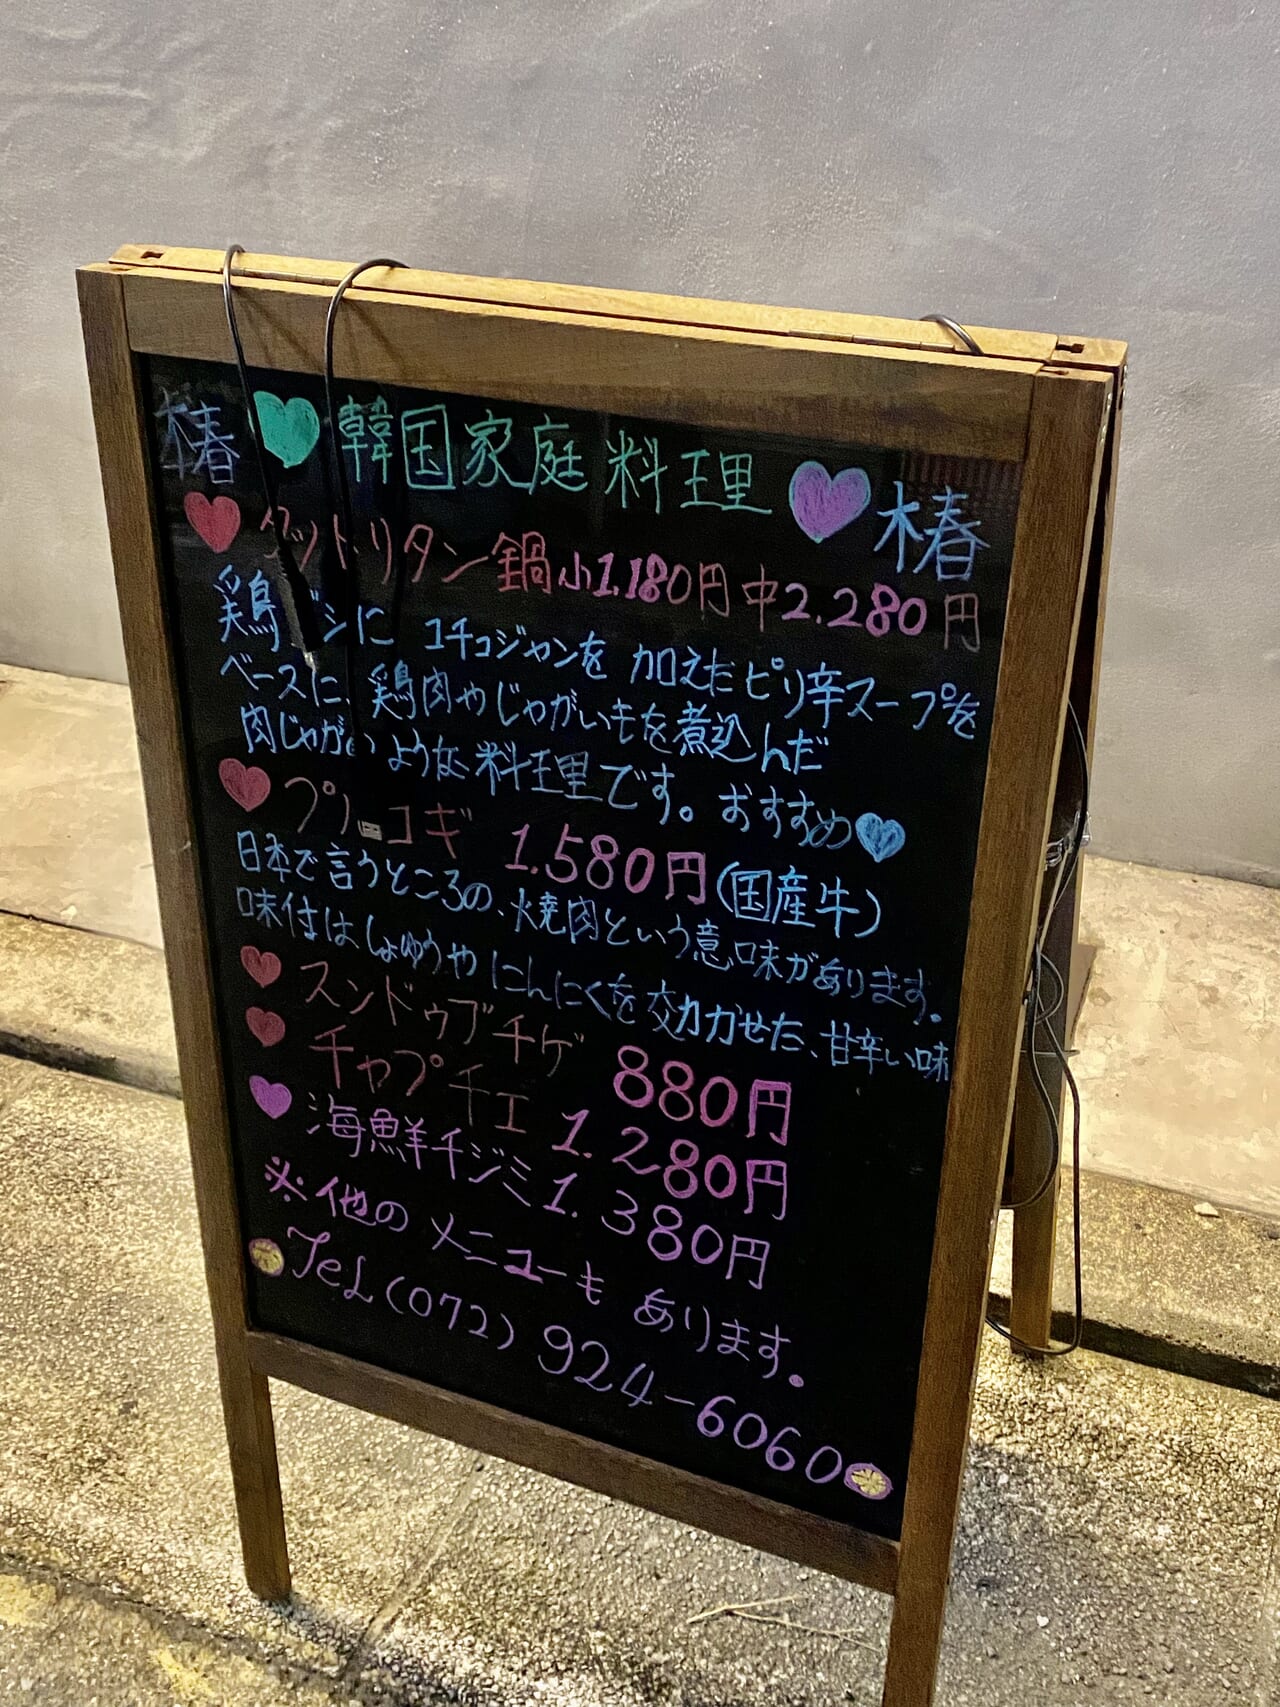 椿 韓国家庭料理 椿
ダットリタン鍋 小1.180円 中2.280円
鶏ダシに コチュジャンを 加えたピリ辛スープを
ベースに、鶏肉やじゃがいもを煮込んだ
肉じゃがのような料理です。おすすめ
プルコギ 1.580円(国産牛)
日本で言うところの、焼肉という意味があります。
味付はしょゆうやにんにくを効かせた、甘辛い味
スンドゥブチゲ 880円
チャプチェ 1.280円
海鮮チジミ 1.380円
※他のメニューも あります。
TeL (072) 924-6060